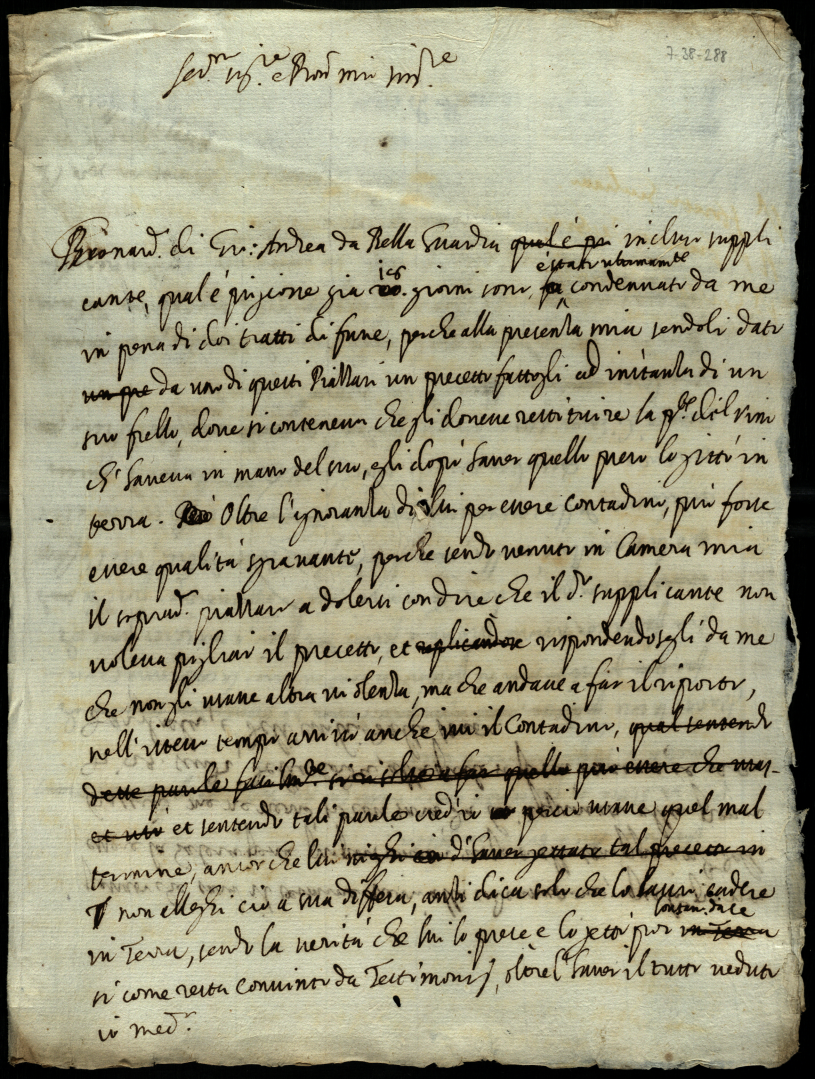 7-38-288
Ser.mo sig.re e Pron mio sin.re
Bernard.o di Gio: Andrea da Bella Guardia qual è poi incluso suppli
cante, qual è prigione gia 16. giorni sono, è stato ultimam.te condennato da me
in pena di doi tratti di fune, perche alla presenza mia sendoli dato
un pre da uno di questi Piazzari un precetto fattogli ad instanza di un
suo frello, dove si conteneva che gli doveva restituire la p.te del vino
ch'haveva in mano del suo, egli dopo haver quello preso lo gittò in
terra. Oltre l'ignoranza di lui per essere Contadino, può forse
essere qualità sgravante, perche sendo venuto in Camera mia
il soprad.o piazzaro a dolersi con dire che il d.o supplicante non
voleva pigliar il precetto, et replicandose rispondendosegli da me
che non gli usasse altra violenza, ma che andasse a far il riporto,
nell'istesso tempo arrivò anche ivi il Contadino, qual sentendo
dette parole facilm.te si risolse a far quello può essere che usas-
et usò et sentendo tali parole credo perciò usasse quel mal
termine, ancor che lui nieghi d'haver gettato tal precetto in
T non alleghi ciò a sua diffesa, anzi dica solo che lo lasciò cadere
in Terra, sendo la verità che lui lo prese e lo gettò poi in Terra
si come resta convinto da Testimonij, oltre l'haver il tutto veduto
io med.o